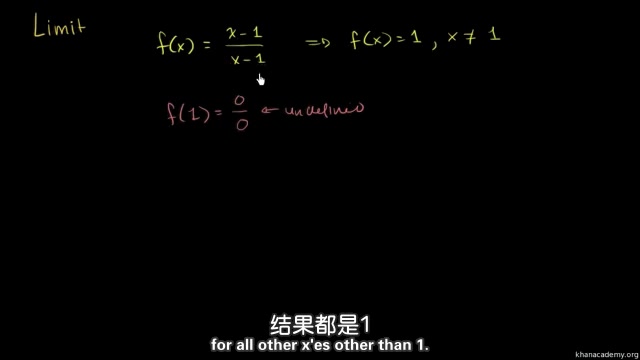 Limit
f(x) = x-1 / x-1 ⇒ f(x) = 1, x ≠ 1
f(1) = 0/0 ← undefined
结果都是1
for all other x'es other than 1.
khanacademy.org